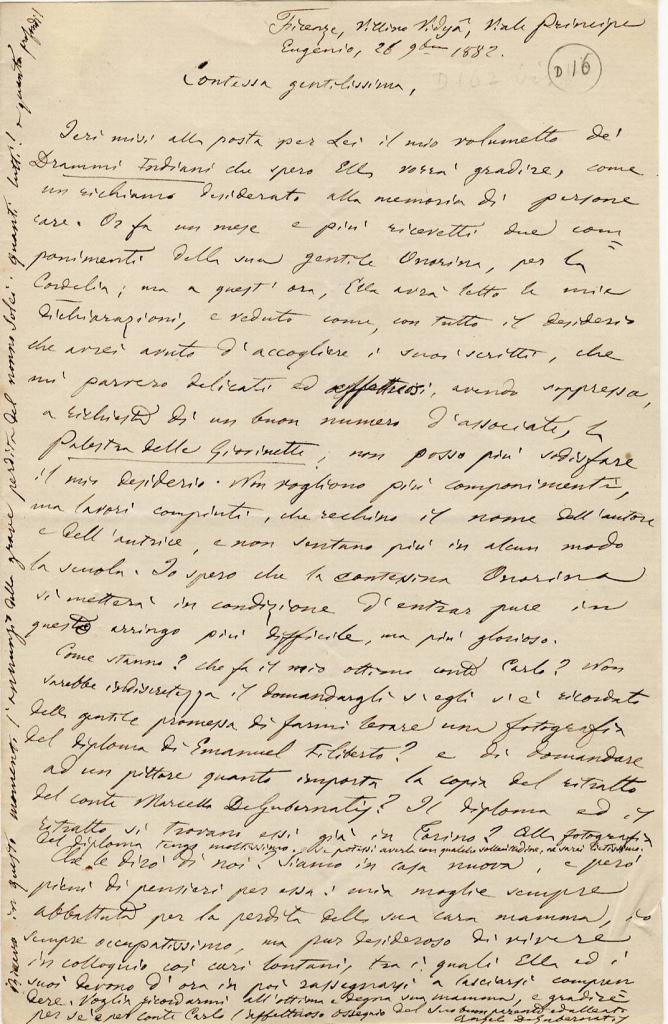 Firenze, Villino Vidyâ, Viale Principe
Eugenio, 26 9bre 1882.
D 16
Contessa gentilissima,
Ieri misi alla posta per Lei il mio volumetto de'
Drammi Indiani che spero Ella vorrà gradire, come
un richiamo desiderato alla memoria di persone
care. Or fa un mese e più ricevetti due com=
ponimenti della sua gentile Onorina, per la
Cordelia; ma a quest'ora, Ella avrà letto le mie
dichiarazioni, e veduto come, con tutto il desiderio
che avrei avuto d'accogliere i suoi scritti, che
mi parvero delicati ed affettuosi, avendo soppressa,
a richiesta di un buon numero d'associate, la
Palestra delle Giovinette, non posso più sodisfare
il mio desiderio. Non vogliono più componimenti,
ma lavori compiuti, che rechino il nome dell'autore
e dell'autrice, e non sentano più in alcun modo
la scuola. Io spero che la contessina Onorina
si metterà in condizione d'entrar pure in
questo arringo più difficile, ma più glorioso.
Come stanno? che fa il mio ottimo conte Carlo? Non
sarebbe indiscretezza il domandargli s'egli s'è ricordato
della gentile promessa di farmi levare una fotografia
del diploma di Emanuel Filiberto? e di domandare
ad un pittore quanto importa la copia del ritratto
del conte Marcello De Gubernatis? Il diploma ed il
ritratto si trovano essi già in Torino? Alla fotografia
del diploma tengo moltissimo. Se potessi averla con qualche sollecitudine, ne sarei lietissimo.
Che le dirò di noi? Siamo in casa nuova, e però
pieni di pensieri per essa; mia moglie sempre
abbattuta per la perdita della sua cara mamma, io
sempre occupatissimo, ma pur desideroso di vivere
in colloquio coi cari lontani, tra i quali Ella ed i
suoi devono d'ora in poi rassegnarsi a lasciarsi compren
dere. Voglia ricordarmi all'ottima e degna sua mamma, e gradire
per sè e per conte Carlo l'affettuoso ossequio del suo buon parente ed
Angelo De Gubernatis
Ricevo in questo momento l'annunzio della grave perdita del nonno Solei: quanti lutti! e quanto profondi!